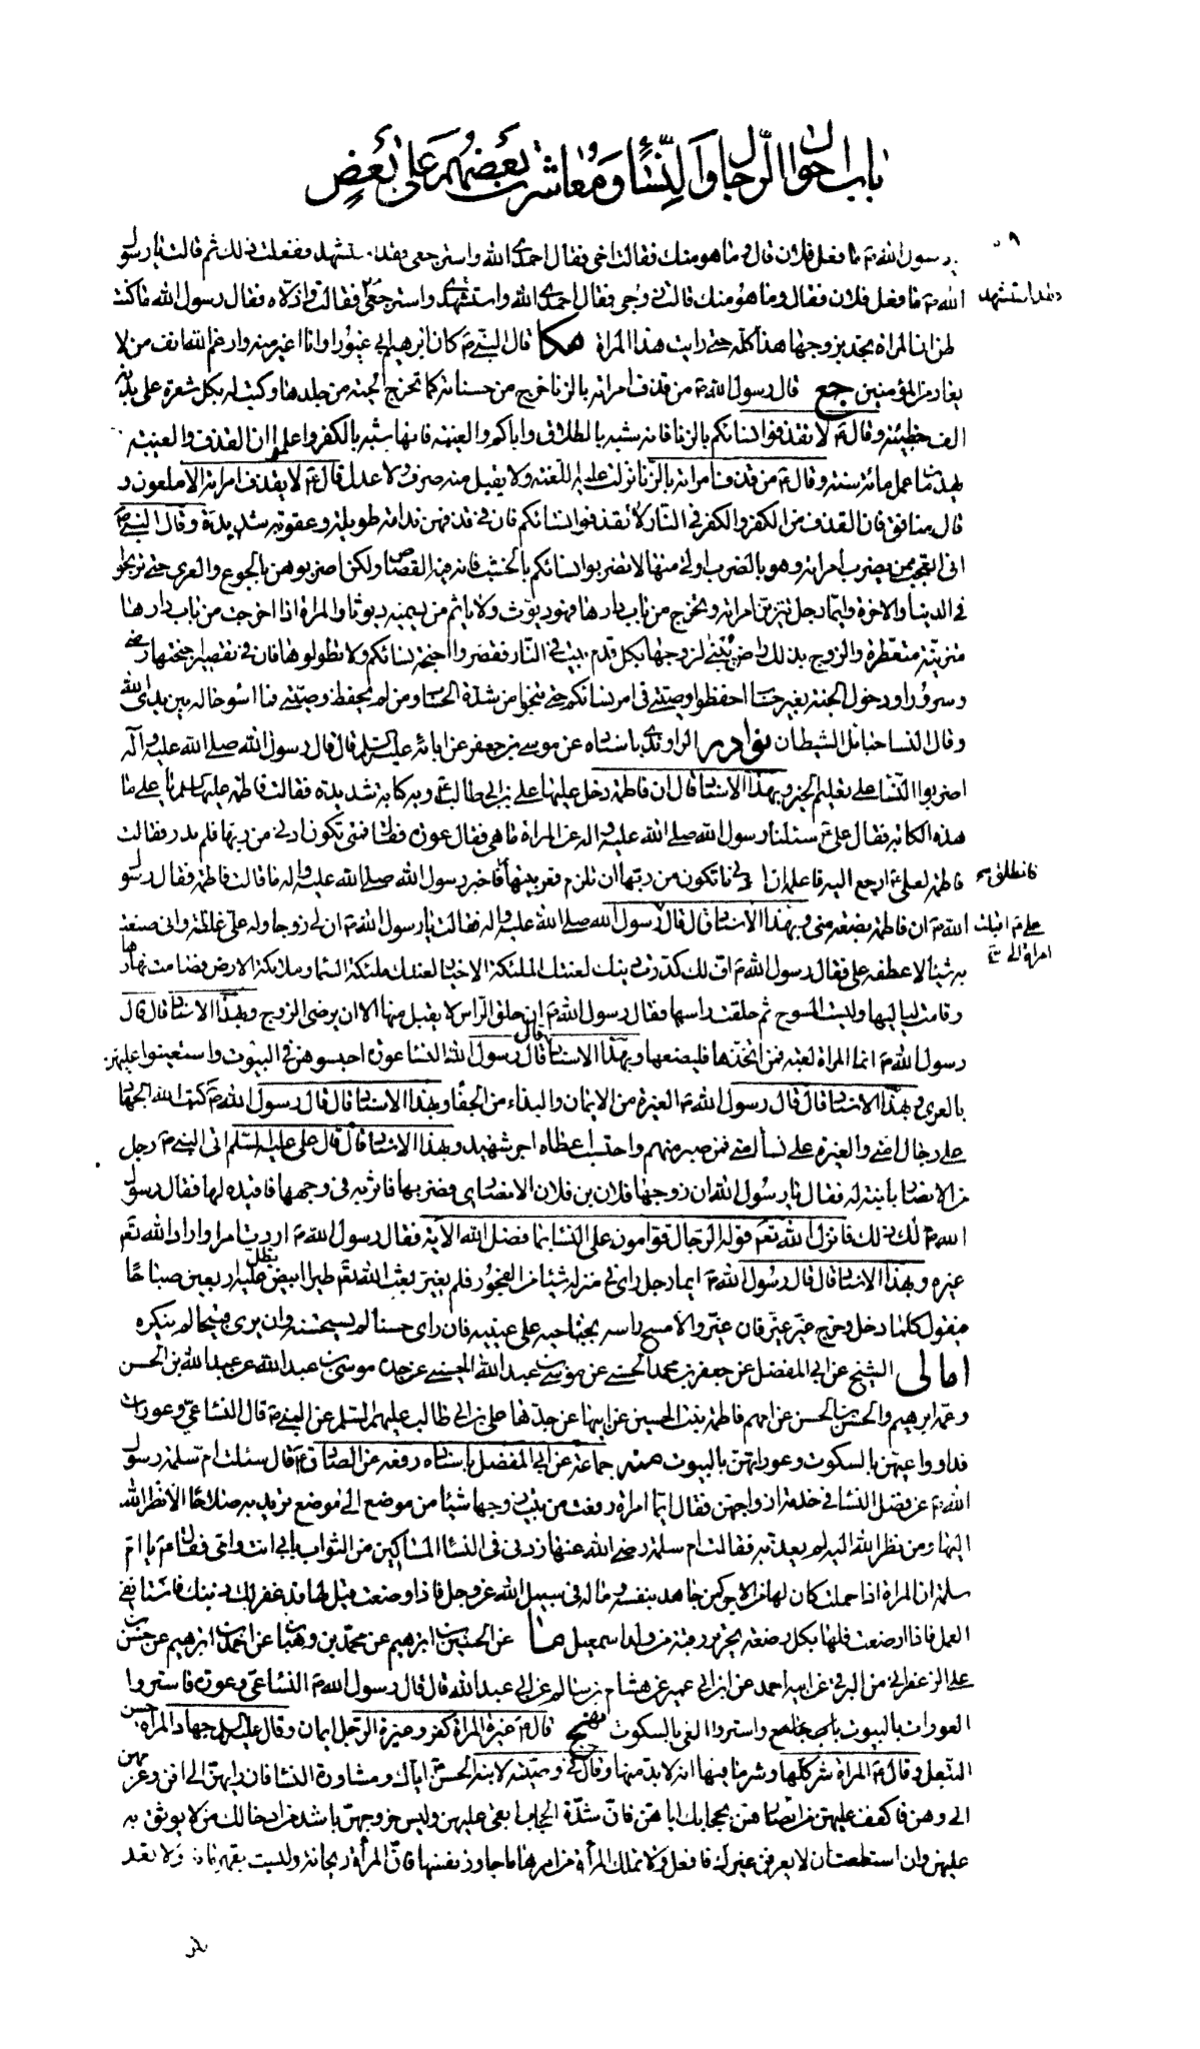 باب احوال الرجال والنساء ومعاشرت بعضهم على بعض
رسول الله ص ما فعل فلان قال و ما هو منك فقالت اخى فقال احمدى الله واسترجعى فقد استشهد ففعلت ذلك ثم قالت يا رسول
الله ص ما فعل فلان فقال وما هو منك قالت زوجى فقال احمدى الله واسترجعى فقد استشهد فقالت واذلاه فقال رسول الله ما كنت
اظن ان المراة تجد بزوجها هذا كله حتى رايت هذه المراة مكا قال النبى ص كان ابرهيم ابى غيورا وانا اغير منه وارغم الله انف من لا
يغار من المؤمنين جع قال رسول الله ص من قذف امراته بالزنا خرج من حسناته كما تخرج الحية من جلدها وكتب له بكل شعرة على بدنه
الف خطيئة وقال ص لا تقذفوا نسائكم بالزنا فانه شبه بالطلاق واياكم والغيبة فانها شبه بالكفر واعلموا ان القذف والغيبة
يهدمان عمل مائة سنة وقال ص من قذف امراته بالزنا نزلت عليه اللعنة ولا يقبل منه صرف ولا عدل قال ص لا يقذف امراته الا ملعون و
قال منافق فان القذف من الكفر والكفر فى النار لا تقذفوا نسائكم فان فى قذفهن ندامة طويلة وعقوبة شديدة وقال النبى ص
انى اتعجب ممن يضرب امراته وهو بالضرب اولى منها لا تضربوا نسائكم بالخشب فان فيه القصاص ولكن اضربوهن بالجوع والعرى حتى تربحوا
فى الدنيا والاخرة وايما رجل تتزين امراته وتخرج من باب دارها فهو ديوث ولا ياثم من يسميه ديوثا والمراة اذا خرجت من باب دارها
متزينة متعطرة والزوج بذلك راض يبنى لزوجها بكل قدم بيت فى النار فقصروا اجنحة نسائكم ولا تطولوها فان فى تقصير اجنحتها رضى
وسرورا ودخول الجنة بغير حساب احفظوا وصيتى فى امر نسائكم حتى تنجوا من شدة الحساب ومن لم يحفظ وصيتى فما اسوء حاله بين يدى الله
وقال النساء حبائل الشيطان نوادر الراوندى باسناده عن موسى بن جعفر عن ابائه عليهم السلم قال قال رسول الله صلى الله عليه و آله
اضربوا النساء على تعليم الخير وبهذا الاسناد قال ان فاطمة دخل عليها على بن ابى طالب ع وبه كابة شديدة فقالت فاطمة عليها السلم يا على ما
هذه الكابة فقال على ع سئلنا رسول الله صلى الله عليه و اله عن المراة ما هى فقال عورة فقلنا فمتى تكون ادنى من ربها فلم ندر فقالت
فاطمة لعلى ع ارجع اليه فاعلمه ان ادنى ما تكون من ربها ان تلزم قعر بيتها فاخبر رسول الله صلى الله عليه و اله ما قالت فاطمة فقال رسول
فانطلق
الله ص ان فاطمة بضعة منى وبهذا الاسناد قال قال رسول الله صلى الله عليه و اله فقالت يا رسول الله ص ان لى زوجا وله على غلظة وانى صنعت
على ع اقبلت
امراة الى
به شيئا لاعطفه على فقال رسول الله ص اف لك كدرت دينك لعنتك الملئكة الاخيار لعنتك ملئكة السماء وملائكة الارض فصامت نهارها
وقامت لياليها ولبست المسوح ثم حلقت راسها فقال رسول الله ص ان حلق الراس لا يقبل منها الا ان يرضى الزوج وبهذا الاسناد قال قال
رسول الله ص انما المراة لعبة فمن اتخذها فليضعها وبهذا الاسناد قال قال رسول الله النساء عورة احبسوهن فى البيوت واستعينوا عليهن
بالعرى وبهذا الاسناد قال قال رسول الله ص الغيرة من الايمان والبذاء من الجفاء وبهذا الاسناد قال قال رسول الله ص كتب الله الجهاد
على رجال امتى والغيرة على نساء امتى فمن صبر منهم واحتسب اعطاه اجر شهيد وبهذا الاسناد قال قال على عليه السلم اتى النبى ص رجل
من الانصار بابنة له فقال يا رسول الله ان زوجها فلان بن فلان الانصارى فضربها فاثر به فى وجهها فاقيده لها فقال رسول
الله ص لك ذلك فانزل الله تعم قوله الرجال قوامون على النساء بما فضل الله الاية فقال رسول الله ص اردت امرا واراد الله تعم
غيره وبهذا الاسناد قال قال رسول الله ص ايما رجل راى فى منزله شيئا من الفجور فلم يغير بعث الله تعم طيرا ابيض يظل عليه اربعين صباحا
فيقول كلما دخل وخرج غير غير فان غير والا مسح راسه بجناحيه على عينيه فان راى حسنا لم يستحسنه وان يرى قبيحا لم ينكره
امالى الشيخ عن ابى المفضل عن جعفر بن محمد الحسنى عن موسى بن عبد الله الحسنى عن جده موسى بن عبد الله عن عبد الله بن الحسن
وعمه ابرهيم والحسن بن الحسن عن امهم فاطمة بنت الحسين عن ابيها عن جدها على بن ابى طالب عليهم السلم عن النبى ص قال النساء عى وعورات
فداووا عيهن بالسكوت وعوراتهن بالبيوت منه جماعة عن ابى المفضل باسناده رفعه عن الصادق ع قال سئلت ام سلمة رسول
الله ص عن فضل النساء فى خدمة ازواجهن فقال ايما امراة رفعت من بيت زوجها شيئا من موضع الى موضع تريد به صلاحا الا نظر الله
اليها ومن نظر الله اليه لم يعذبه فقالت ام سلمة رضى الله عنها زدنى فى النساء المساكين من الثواب بابى انت وامى فقال ص يا ام
سلمة ان المراة اذا حملت كان لها من الاجر كمن جاهد بنفسه و ماله فى سبيل الله عز وجل فاذا وضعت قيل لها قد غفر لك ذنبك فاستانفى
العمل فاذا ارضعت فلها بكل رضعة تحرير رقبة من ولد اسمعيل ما عن الحسين بن ابرهيم عن محمد بن وهبان عن احمد بن ابرهيم عن حسن بن
على الزعفرانى عن البرقى عن ابيه احمد عن ابن ابى عمير عن هشام بن سالم عن ابى عبد الله قال قال رسول الله ص النساء عى وعورة فاستروا
العورات بالبيوت واستروا العى بالسكوت نهج قال ع غيرة المراة كفر وغيرة الرجل ايمان وقال عليه السلم جهاد المراة حسن
التبعل وقال ع المراة شر كلها وشر ما فيها انه لا بد منها وقال فى وصيته لابنه الحسن ع اياك ومشاورة النساء فان رايهن الى افن وعزمهن
الى وهن فاكفف عليهن من ابصارهن بحجابك اياهن فان شدة الحجاب ابقى عليهن وليس خروجهن باشد من ادخالك من لا يوثق به
عليهن وان استطعت ان لا يعرفن غيرك فافعل ولا تملك المرأة من امرها ما جاوز نفسها فان المرأة ريحانة وليست بقهرمانة ولا تعد